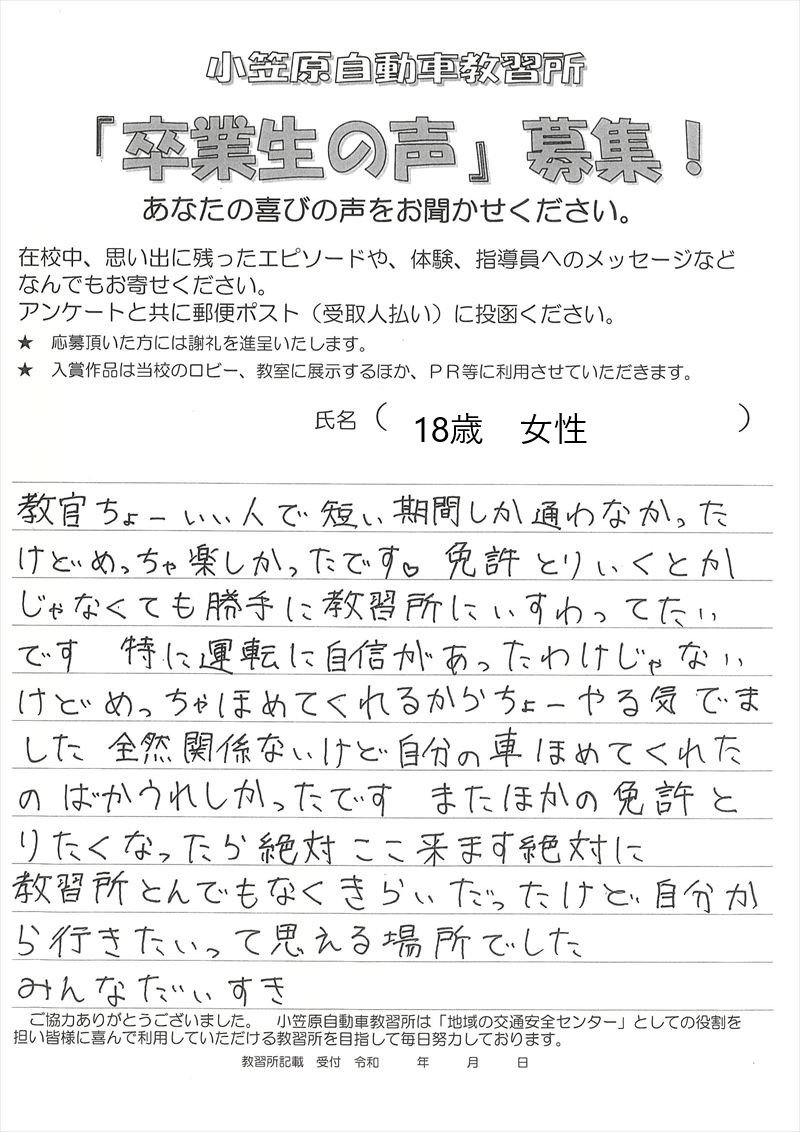 小笠原自動車教習所
「卒業生の声」募集！
あなたの喜びの声をお聞かせください。
在校中、思い出に残ったエピソードや、体験、指導員へのメッセージなど
なんでもお寄せください。
アンケートと共に郵便ポスト（受取人払い）に投函ください。
★　応募頂いた方には謝礼を進呈いたします。
★　入賞作品は当校のロビー、教室に展示するほか、ＰＲ等に利用させていただきます。
氏名（　18歳　女性　）
教官ちょーいい人で短い期間しか通わなかった
けどめっちゃ楽しかったです♡ 免許とりいくとか
じゃなくても勝手に教習所にいすわってたい
です　特に運転に自信があったわけじゃない
けどめっちゃほめてくれるからちょーやる気でま
した 全然関係ないけど自分の車ほめてくれた
のばかうれしかったです　またほかの免許と
りたくなったら絶対ここ来ます絶対に
教習所とんでもなくきらいだったけど自分か
ら行きたいって思える場所でした
みんなだいすき
ご協力ありがとうございました。　小笠原自動車教習所は「地域の交通安全センター」としての役割を
担い皆様に喜んで利用していただける教習所を目指して毎日努力しております。
教習所記載　受付　令和　　年　　月　　日